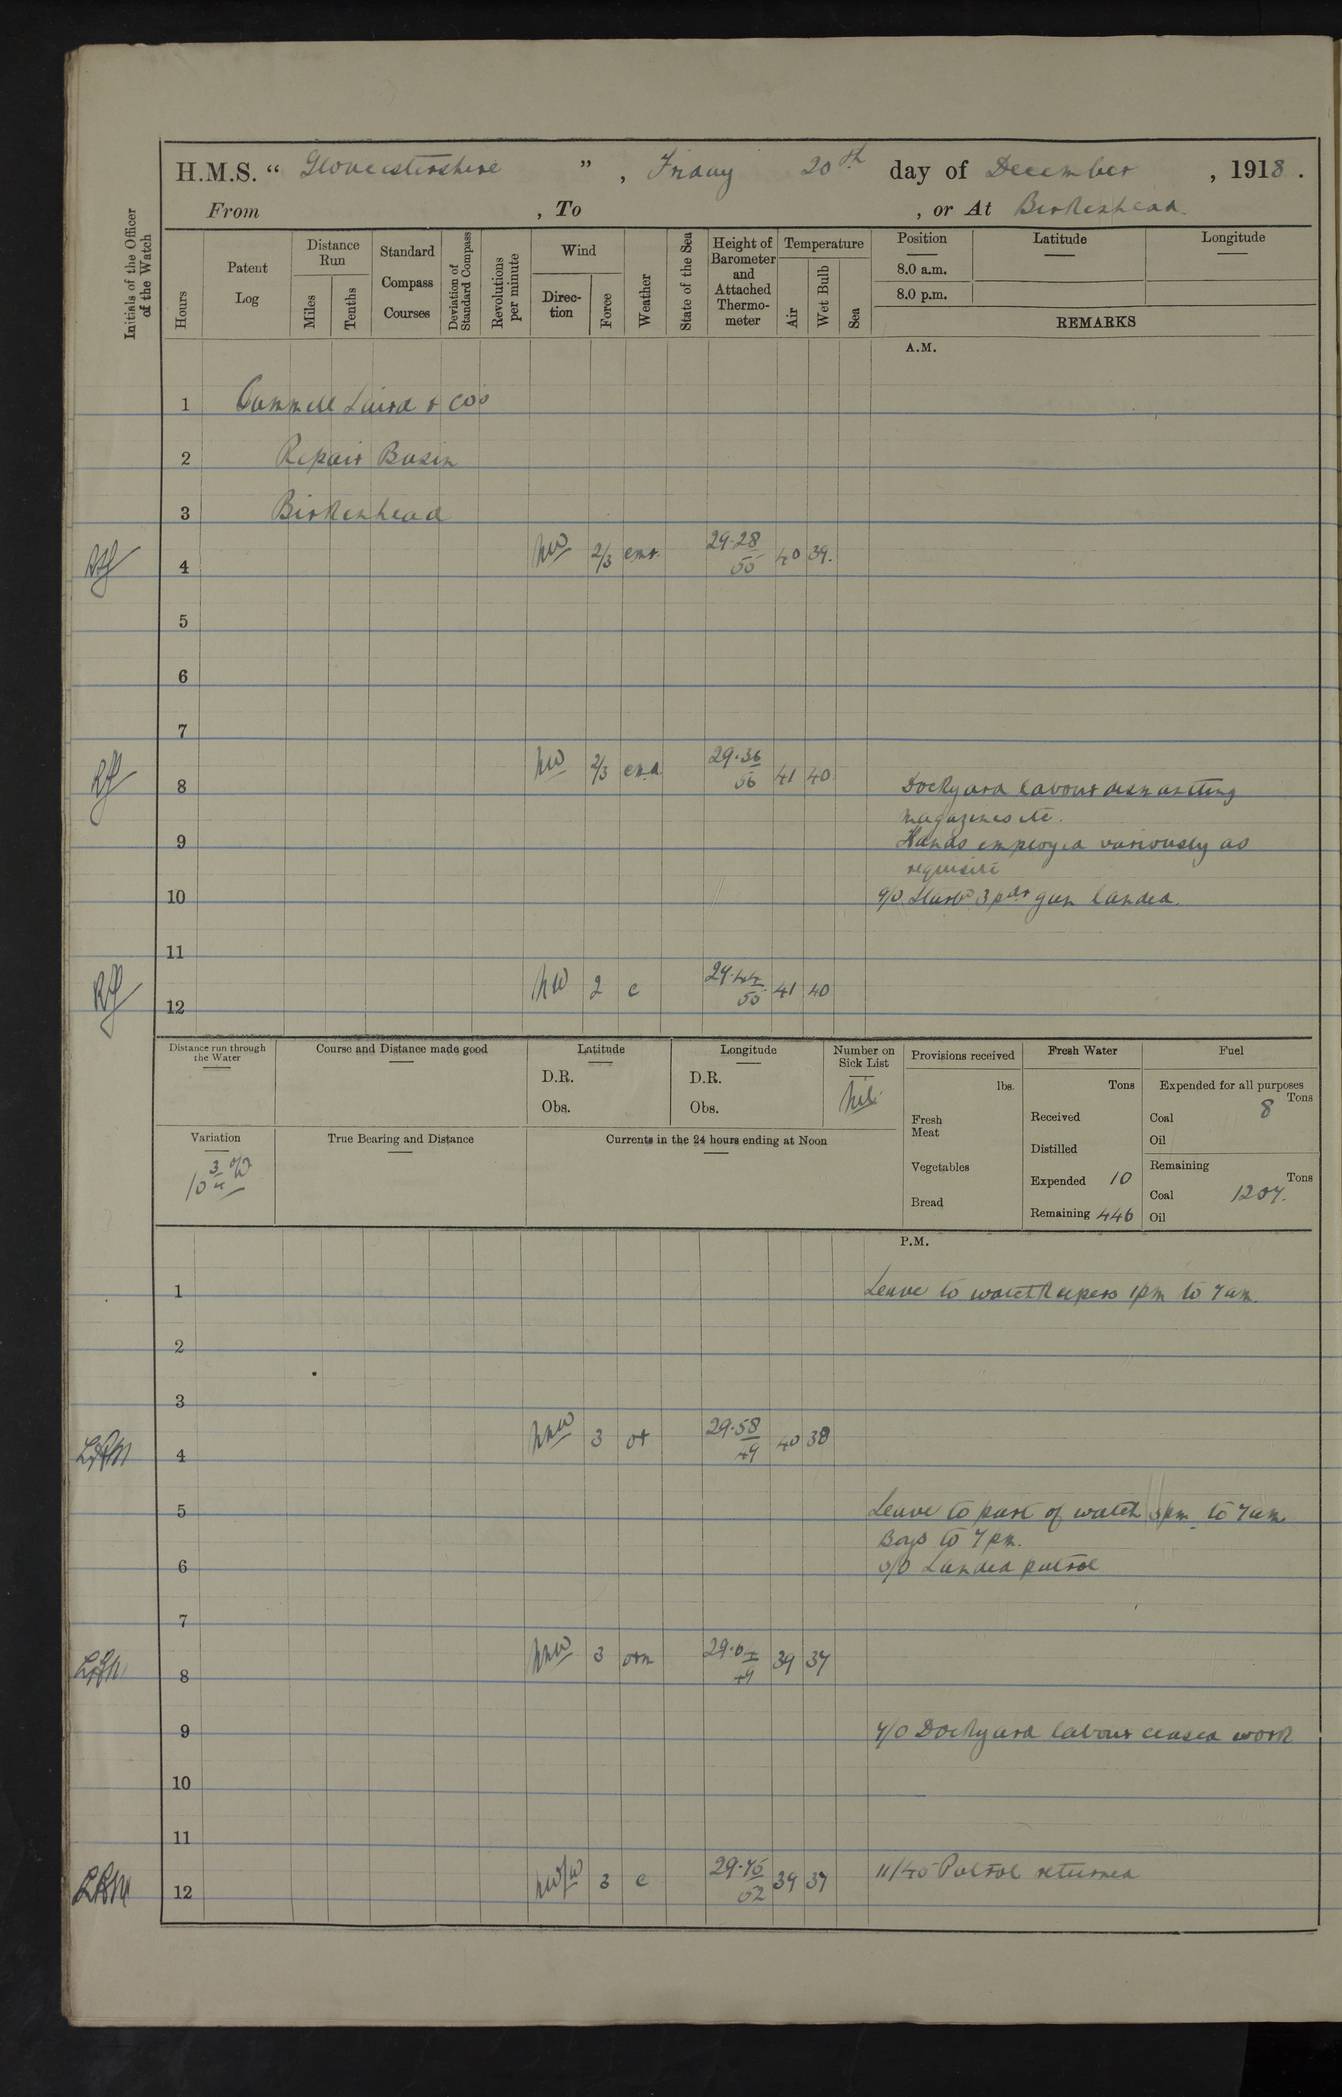 H.M.S. “ Gloucestershire ” , Friday 20th day of December , 1918 .
From , To , or At Birkenhead.
Initials of the Officer of the Watch
Hours
Patent Log
Distance Run
Miles
Tenths
Standard Compass Courses
Deviation of Standard Compass
Revolutions per minute
Wind
Direction
Force
Weather
State of the Sea
Height of Barometer and Attached Thermometer
Temperature
Air
Wet Bulb
Sea
Position
Latitude
Longitude
8.0 a.m.
8.0 p.m.
REMARKS
A.M.
1 Cammell Laird & Co's
2 Repair Basin
3 Birkenhead
4 NW 2/3 29.28 55 40 39.
5
6
7
8 NW 2/3 29.36 56 41 40 Dockyard labour dismantling
magazines etc.
9 Hands employed variously as
requisite
10 9/0 Starbd 3 pdr gun landed.
11
12 NW 2 c 29.44 55 41 40
Distance run through the Water
Course and Distance made good
Latitude
D.R.
Obs.
Longitude
D.R.
Obs.
Number on Sick List
Nil
Provisions received
lbs.
Fresh Meat
Vegetables
Bread
Fresh Water
Tons
Received
Distilled
Expended 10
Remaining 446
Fuel
Expended for all purposes
Tons
Coal 8
Oil
Remaining
Tons
Coal 1207.
Oil
Variation
10 3/4 °W
True Bearing and Distance
Currents in the 24 hours ending at Noon
P.M.
1 Leave to watchkeepers 1pm to 7am.
2
3
4 NNW 3 or 29.58 49 40 38
5 Leave to part of watch 5pm to 7am
Boys to 7pm.
6 5/0 Landed patrol
7
8 NNW 3 orm 49 39 37
9 7/0 Dockyard labour ceased work
10
11
12 3 c 29.75 52 39 37 11/45 Patrol returned